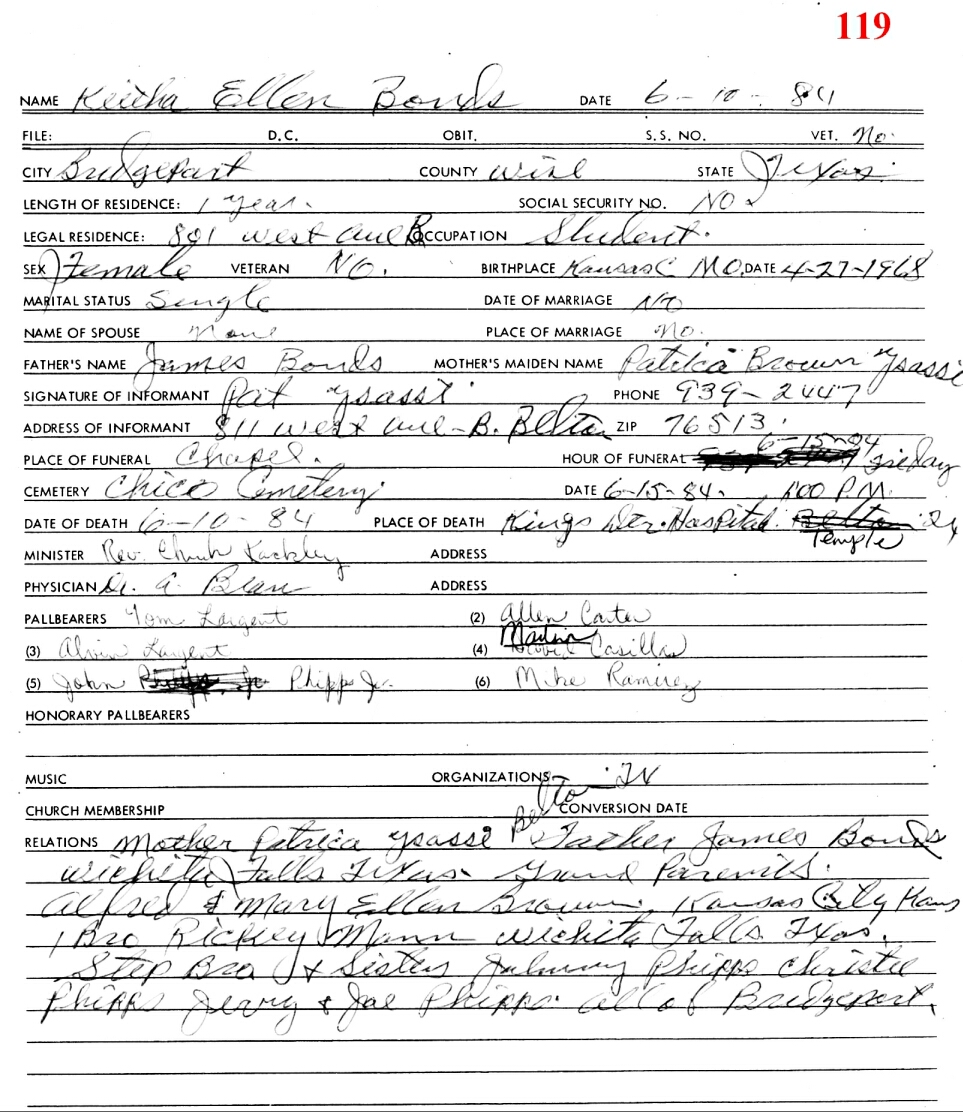 119
NAME Keitha Ellen Bonds DATE 6-10-84
FILE: D.C. OBIT. S.S. NO. VET. No.
CITY Bridgeport COUNTY Wise STATE Texas.
LENGTH OF RESIDENCE: 1 year. SOCIAL SECURITY NO. NO
LEGAL RESIDENCE: 801 West Ave B OCCUPATION Student.
SEX Female VETERAN NO. BIRTHPLACE Kansas C MO. DATE 4-27-1968
MARITAL STATUS Single DATE OF MARRIAGE No
NAME OF SPOUSE None PLACE OF MARRIAGE No.
FATHER'S NAME James Bonds MOTHER'S MAIDEN NAME Patrica Brown Ysassi
SIGNATURE OF INFORMANT Pat Ysassi PHONE 939-2447
ADDRESS OF INFORMANT 811 West Ave-B. Belton ZIP 76513.
6-15-84
PLACE OF FUNERAL Chapel. HOUR OF FUNERAL Friday
CEMETERY Chico Cemetery DATE 6-15-84. 1:00 P.M.
DATE OF DEATH 6-10-84 PLACE OF DEATH Kings Dtr. Hospital Belton Tx
Temple
MINISTER Rev. Chuck Kackley ADDRESS
PHYSICIAN Dr. A. Bean ADDRESS
PALLBEARERS Tom Largent (2) Allen Carter
(3) Alvin Largent (4) Martin Casillas
(5) John Phipps Jr. (6) Mike Ramirez
HONORARY PALLBEARERS
MUSIC ORGANIZATIONS TX
CHURCH MEMBERSHIP Belton CONVERSION DATE
RELATIONS Mother Patrica Ysassi Father James Bonds
Wichita Falls Texas. Grand Parents.
Alfred & Mary Ellen Brown. Kansas City Kans
1 Bro Rickey Mann Wichita Falls Txas.
Step Bro & Sisters Johnny Phipps Christie
Phipps Jerry & Joe Phipps. all of Bridgeport.